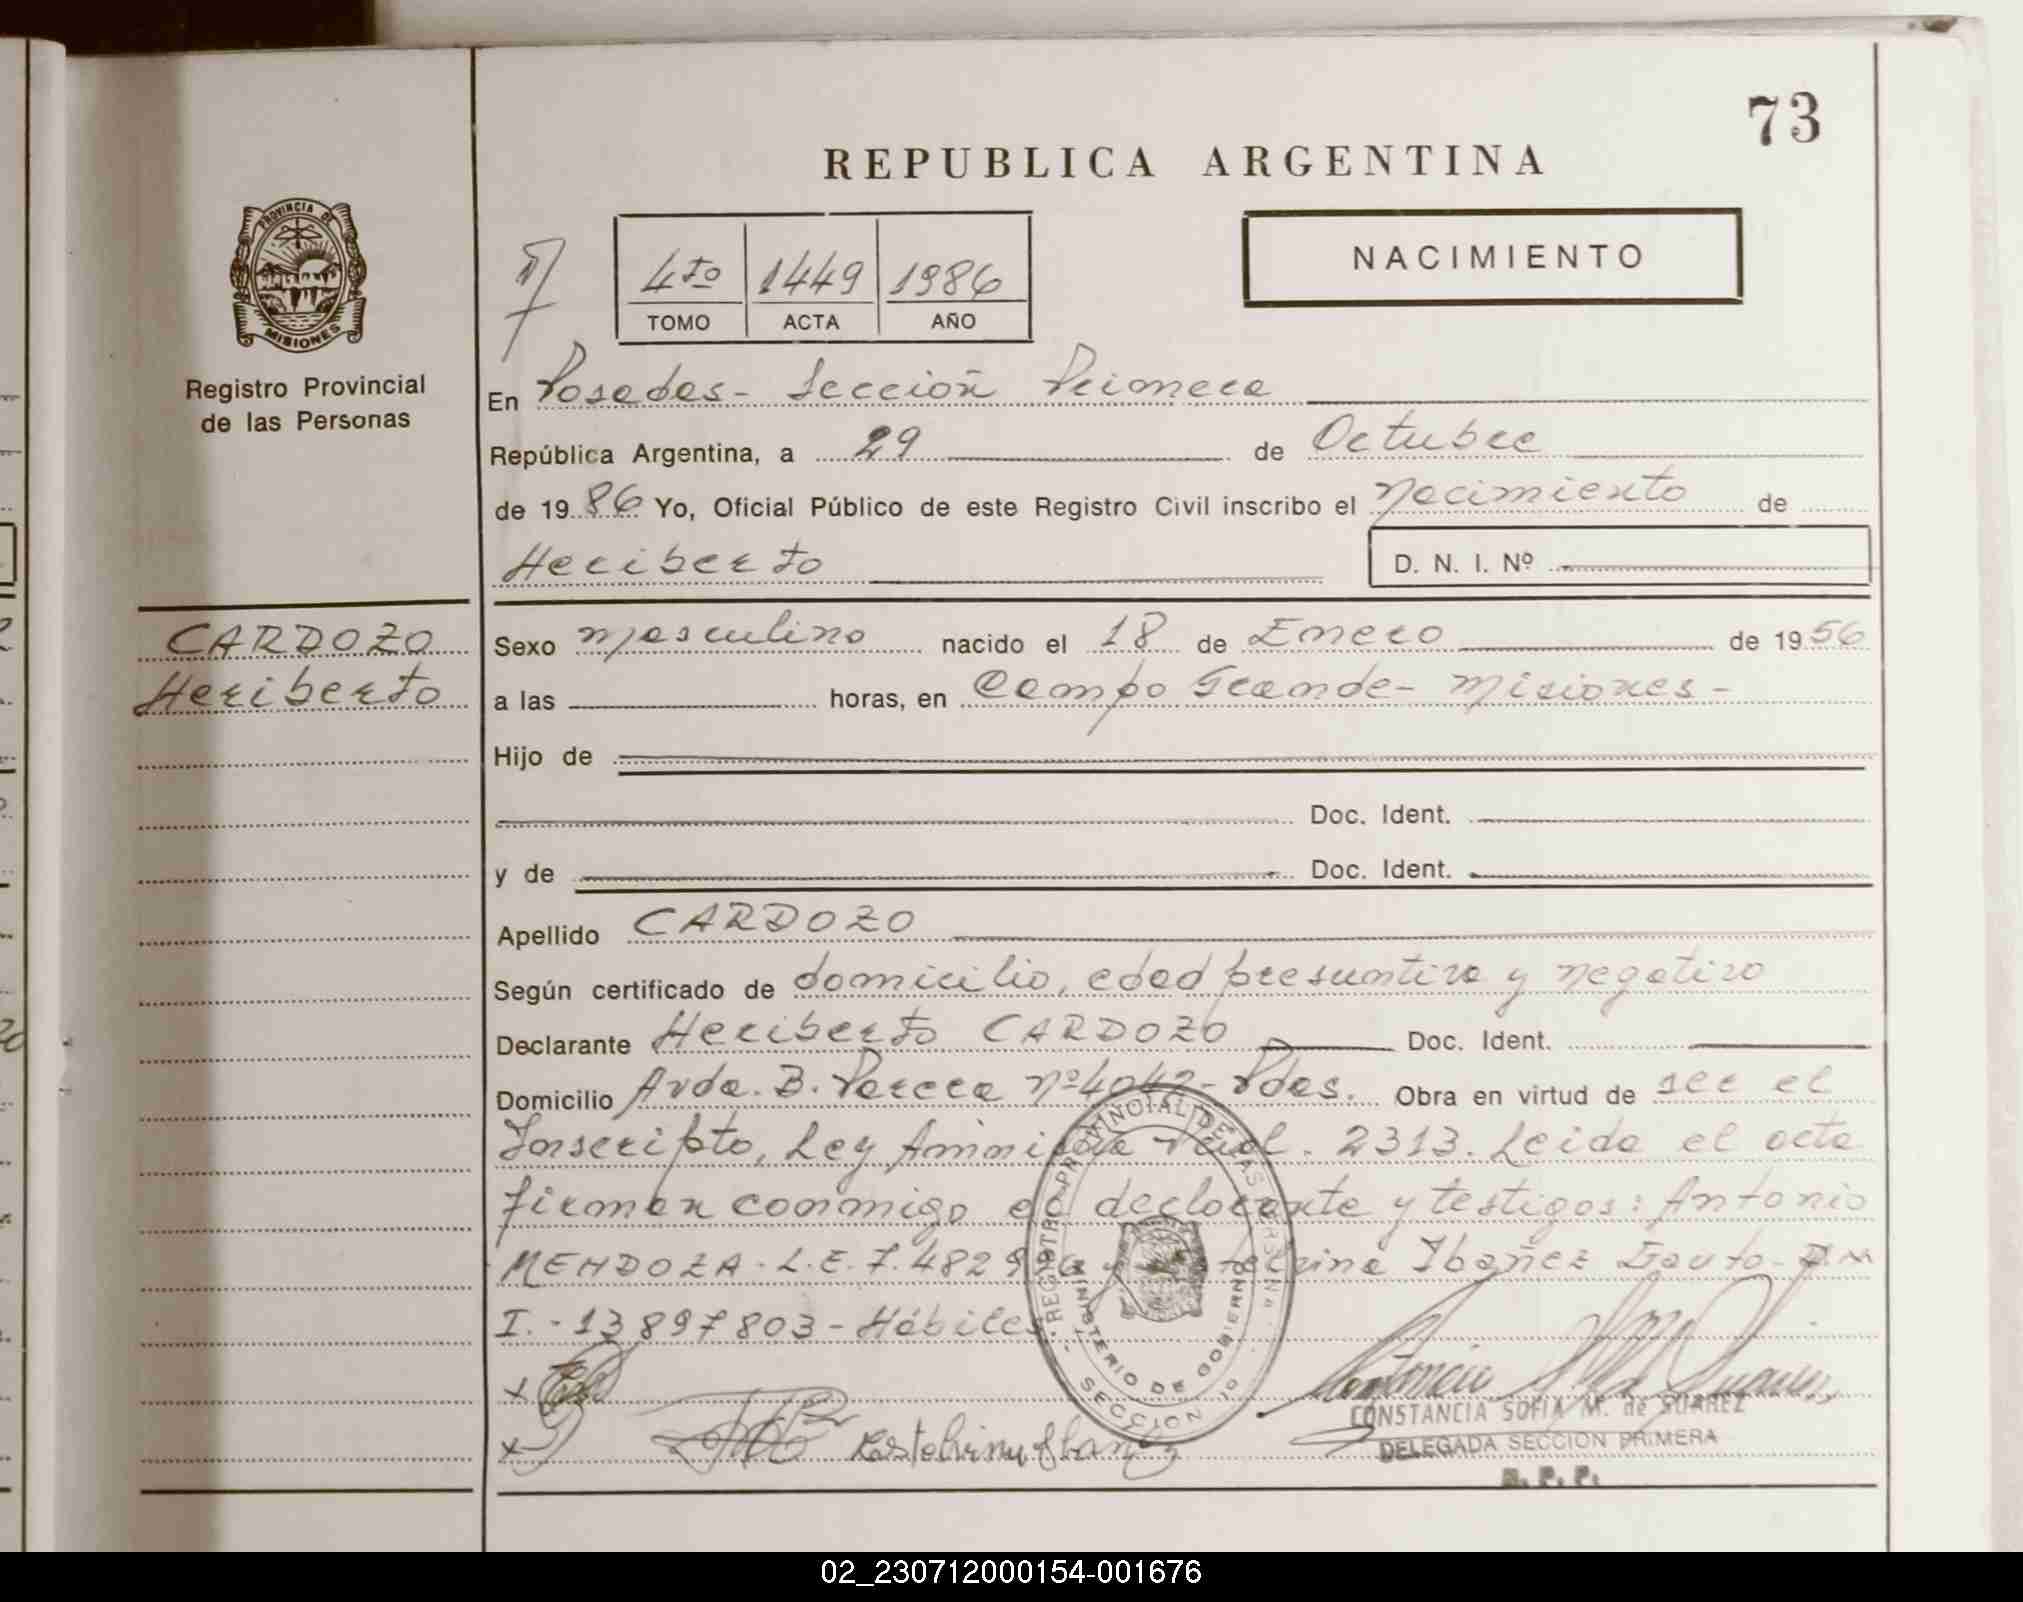 73
REPUBLICA ARGENTINA
PROVINCIA DE
MISIONES
Registro Provincial
de las Personas
4to 1449 1986
TOMO ACTA AÑO
NACIMIENTO
En Posadas - Sección Primera
República Argentina, a 29 de Octubre
de 1986 Yo, Oficial Público de este Registro Civil inscribo el Nacimiento de
Heriberto D. N. I. Nº
CARDOZO
Heriberto
Sexo masculino nacido el 18 de Enero de 1956
a las horas, en Campo Grande - Misiones -
Hijo de
Doc. Ident.
y de Doc. Ident.
Apellido CARDOZO
Según certificado de domicilio, edad presuntiva y negativo
Declarante Heriberto CARDOZO Doc. Ident.
Domicilio Avda. B. Perera nº 4042 - Pdas. Obra en virtud de ser el
Inscripto, Ley Amnistia Pcial. 2313. Leida el acta
firman conmigo el declarante y testigos: Antonio
MENDOZA - L.E. 7.482 Ibañez Gauto - D.N
I. - 13897803 - Hábiles
REGISTRO PROVINCIAL DE LAS PERSONAS
MINISTERIO DE GOBIERNO
SECCION 01
Estelvina Ibañez
CONSTANCIA SOFIA M. de SUAREZ
DELEGADA SECCION PRIMERA
R. P. P.
02_230712000154-001676